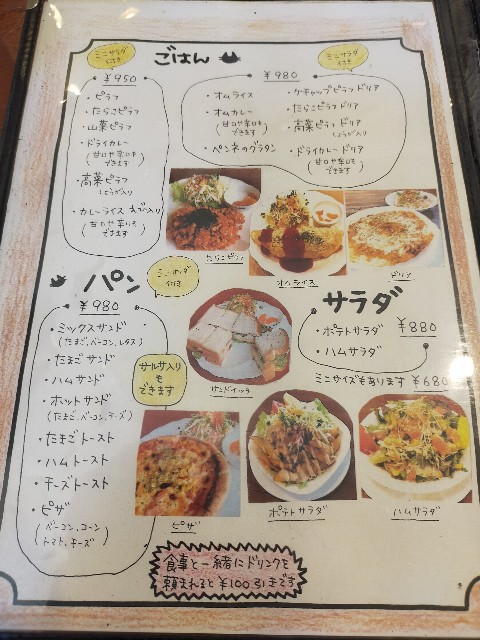 ごはん
ミニサラダ
付き
¥950
・ピラフ
・たらこピラフ
・山菜ピラフ
・ドライカレー
(甘口や辛口も
できます)
・高菜ピラフ
しょうが入り
・カレーライス えび入り
(甘口や辛口も
できます)
ミニサラダ
付き
¥980
・オムライス
・オムカレー
(甘口や辛口も
できます)
・ペンネのグラタン
・ケチャップピラフドリア
・たらこピラフドリア
・高菜ピラフドリア
しょうが入り
・ドライカレードリア
(甘口や辛口も
できます)
たらこピラフ
オムライス
ドリア
パン
ミニサラダ
付き
¥980
・ミックスサンド
(たまご、ベーコン、レタス)
・たまごサンド
・ハムサンド
・ホットサンド
(たまご、ベーコン、チーズ)
・たまごトースト
・ハムトースト
・チーズトースト
・ピザ
(ベーコン、コーン
トマト、チーズ)
サルサ入り
も
できます
サンドイッチ
ピザ
サラダ
・ポテトサラダ ¥880
・ハムサラダ
ミニサイズもあります ¥680
ポテトサラダ
ハムサラダ
食事と一緒にドリンクを
頼まれると¥100引きです